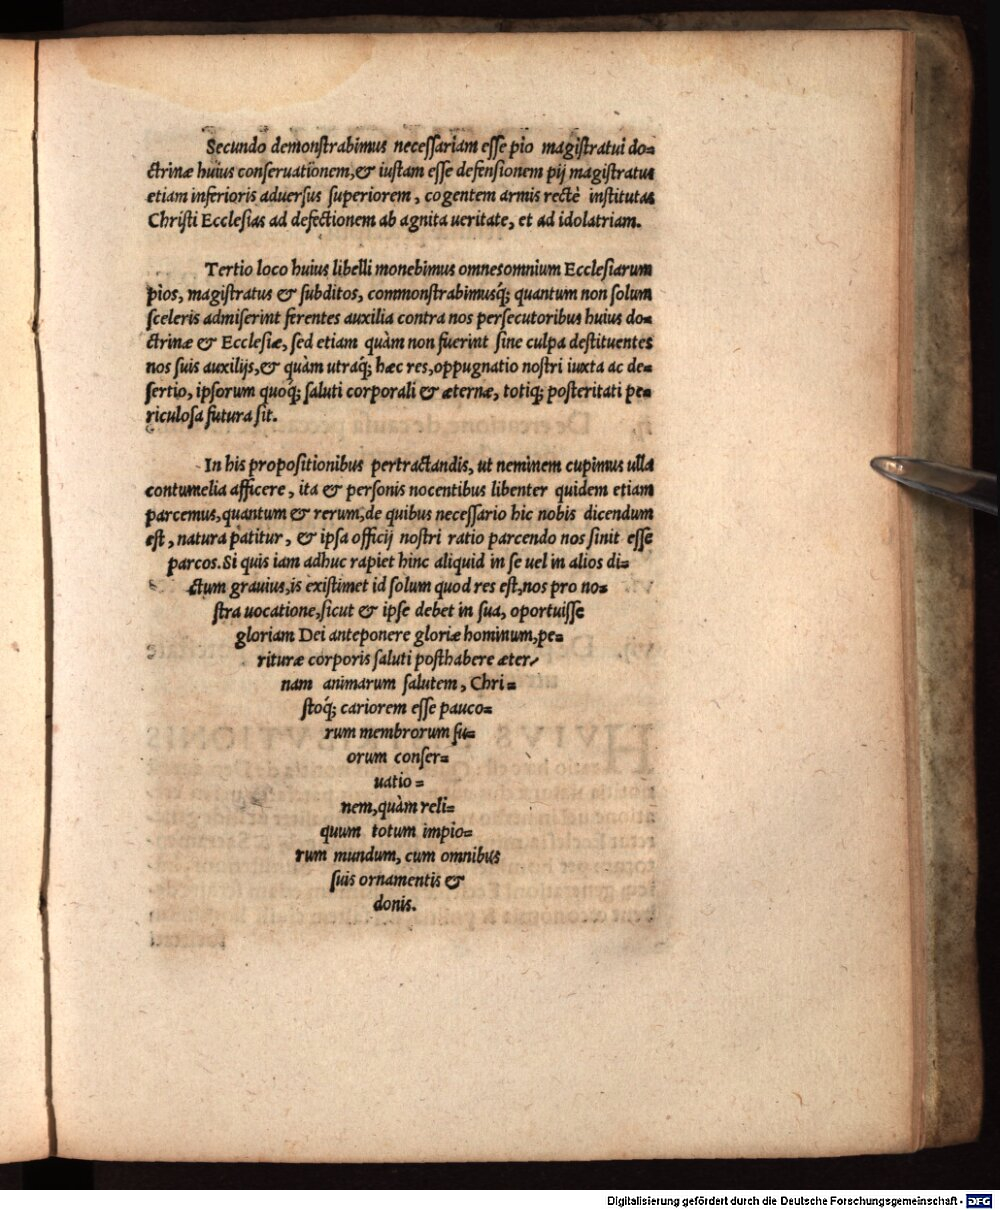 Secundo demonstrabimus necessariam esse pio magistratui do=
ctrinæ huius conseruationem,& iustam esse defensionem pij magistratus
etiam inferioris aduersus superiorem, cogentem armis rectè institutas
Christi Ecclesias ad defectionem ab agnita ueritate, et ad idolatriam.
Tertio loco huius libelli monebimus omnes omnium Ecclesiarum
pios, magistratus & subditos, commonstrabimusq́; quantum non solum
sceleris admiserint ferentes auxilia contra nos persecutoribus huius do=
ctrinæ & Ecclesiæ, sed etiam quàm non fuerint sine culpa destituentes
nos suis auxilijs,& quàm utraq́; hæc res,oppugnatio nostri iuxta ac de=
sertio, ipsorum quoq́; saluti corporali & æternæ, totiq́; posteritati pe=
riculosa futura sit.
In his propositionibus pertractandis, ut neminem cupimus ulla
contumelia afficere, ita & personis nocentibus libenter quidem etiam
parcemus,quantum & rerum,de quibus necessario hic nobis dicendum
est, natura patitur, & ipsa officij nostri ratio parcendo nos sinit esse
parcos.Si quis iam adhuc rapiet hinc aliquid in se uel in alios di=
ctum grauius,is existimet id solum quod res est,nos pro no=
stra uocatione,sicut & ipse debet in sua, oportuisse
gloriam Dei anteponere gloriæ hominum,pe=
rituræ corporis saluti posthabere æter=
nam animarum salutem, Chri=
stoq́; cariorem esse pauco=
rum membrorum su=
orum conser=
uatio=
nem,quàm reli=
quum totum impio=
rum mundum, cum omnibus
suis ornamentis &
donis.
Digitalisierung gefördert durch die Deutsche Forschungsgemeinschaft - DFG